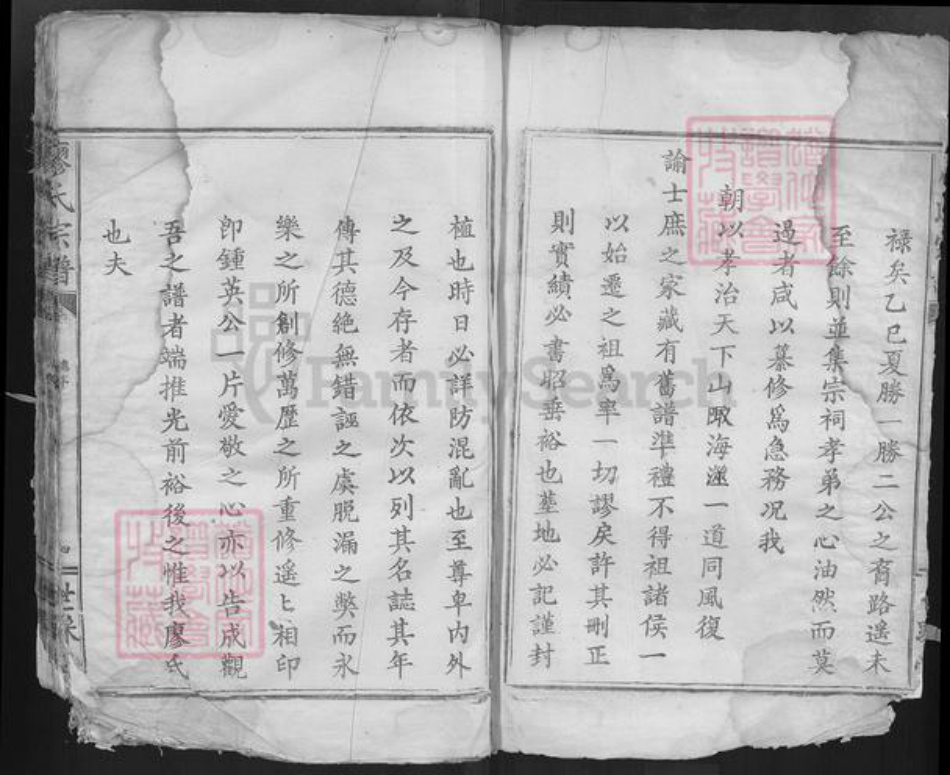 祿矣乙巳夏勝一勝二公之裔路遥未
至餘則並集宗祠孝弟之心油然而莫
遏者咸以纂修爲急務况我
朝以孝治天下山陬海澨一道同風復
諭士庶之家藏有舊譜準禮不得祖諸侯一
以始遷之祖爲率一切謬戾許其刪正
則實績必書昭垂裕也墓地必記謹封
植也時日必詳防混亂也至尊卑内外
之及今存者而依次以列其名誌其年
傳其德絶無錯誣之虞脱漏之獘而永
樂之所創修萬歷之所重修遥匕相印
卽鍾英公一片愛敬之心亦以告成觀
吾之譜者端推光前裕後之惟我廖氏
也夫
廖氏宗譜
世釆
FamilySearch